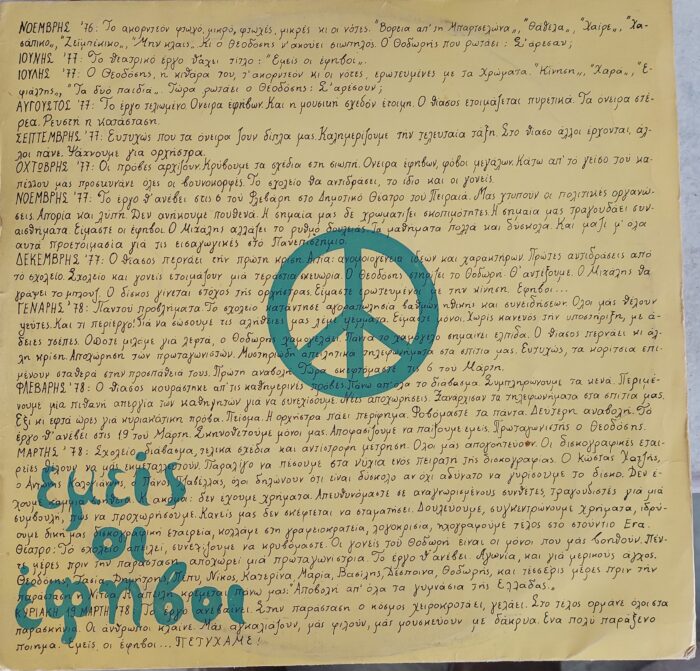 ΝΟΕΜΒΡΗΣ '76: Το ακορντεόν φτωχό, μικρό, φτωχές, μικρές κι οι νότες. "Βόρεια απ' τη Μπαρτσελώνα,, "Θάθελα,, "Χαίρε,, "Χα-
σάπικο,, "Ζεϊμπέκικο,, "Μην κλαις,, Κι ο Θεοδόσης ν' ακούει σιωπηλός. Ο Θοδωρής που ρωτάει: Σ' άρεσαν;
ΙΟΥΝΗΣ '77: Το θεατρικό έργο θάχει τίτλο: "Εμείς οι έφηβοι,,.
ΙΟΥΛΗΣ '77: Ο Θεοδόσης, η κιθάρα του, τ' ακορντεόν κι οι νότες, ερωτευμένες με τα Χρώματα. "Κίνηση,, "Χαρά,, "Ε-
φιάλτης,, "Τα δυό παιδιά,,. Τώρα ρωτάει ο Θεοδόσης: Σ' αρέσουν;
ΑΥΓΟΥΣΤΟΣ '77: Το έργο τελειωμένο. Όνειρα εφήβων. Και η μουσική σχεδόν έτοιμη. Ο θίασος ετοιμάζεται πυρετικά. Τα όνειρα στέ-
ρεα. Ρευστή η κατάσταση.
ΣΕΠΤΕΜΒΡΗΣ '77: Ευτυχώς που τα όνειρα ζουν δίπλα μας. Καλημερίζουμε την τελευταία τάξη. Στο θίασο άλλοι έρχονται, άλ-
λοι πάνε. Ψάχνουμε για ορχήστρα.
ΟΧΤΩΒΡΗΣ '77: Οι πρόβες αρχίζουν. Κρύβουμε τα σχέδια στη σιωπή. Όνειρα εφήβων, φόβοι μεγάλων. Κάτω απ' το γείσο του κα-
πέλλου μας προσκυνάνε όλες οι βουνοκορφές. Το σχολείο θα αντιδράσει, το ίδιο και οι γονείς.
ΝΟΕΜΒΡΗΣ '77: Το έργο θ' ανέβει στις 6 του Φλεβάρη στο Δημοτικό Θέατρο του Πειραιά. Μας χτυπούν οι πολιτικές οργανώ-
σεις. Απορία και λύπη. Δεν ανήκουμε πουθενά. Η σημαία μας δε χρωματίζει σκοπιμότητες. Η σημαία μας τραγουδάει συν-
αισθήματα. Είμαστε οι έφηβοι. Ο Μιχάλης αλλάζει το ρυθμό δουλειάς. Τα μαθήματα πολλά και δύσκολα. Και μαζί μ' όλα
αυτά προετοιμασία για τις εισαγωγικές στο Πανεπιστήμιο.
ΔΕΚΕΜΒΡΗΣ '77: Ο θίασος περνάει την πρώτη κρίση. Αιτία: ανομοιογένεια ιδεών και χαρακτήρων. Πρώτες αντιδράσεις από
το σχολείο. Σχολείο και γονείς ετοιμάζουν μιά τεράστια σκευωρία. Ο Θεοδόσης στηρίζει το Θοδωρή. Θ' αντέξουμε. Ο Μιχάλης θα
γράψει το μπλουζ. Ο δίσκος γίνεται στόχος της ορχήστρας. Είμαστε ερωτευμένοι με την κίνηση. Έφηβοι...
ΓΕΝΑΡΗΣ '78: Παντού προβλήματα. Το σχολείο κατάντησε αγοραπωλησία βαθμών, ηθικής και συνειδήσεων. Όλοι μας θέλουν
ψεύτες. Και τι περίεργο! Για να σώσουμε τις αλήθειες μας λέμε ψέμματα. Είμαστε μόνοι. Χωρίς κανενός την υποστήριξη, με ά-
δειες τσέπες. Ωσότε μιλάμε για λεφτά, ο Θοδωρής χαμογελάει. Πάντα το χαμόγελο σημαίνει ελπίδα. Ο θίασος περνάει κι άλ-
λη κρίση. Αποχώρηση των πρωταγωνιστών. Μυστηριώδη απειλητικά τηλεφωνήματα στα σπίτια μας. Ευτυχώς, τα κορίτσια επι-
μένουν σταθερά στην προσπάθειά τους. Πρώτη αναβολή. Τώρα σκεφτόμαστε τις 6 του Μάρτη.
ΦΛΕΒΑΡΗΣ '78: Ο θίασος κουράστηκε απ' τις καθημερινές πρόβες. Πάνω απ' όλα το διάβασμα. Συμπληρώνουμε τα κενά. Περιμέ-
νουμε μιά πιθανή απεργία των καθηγητών για να συνεχίσουμε. Νέες αποχωρήσεις. Ξανάρχισαν τα τηλεφωνήματα στα σπίτια μας.
Έξι κι εφτά ώρες για κυριακάτικη πρόβα. Πείσμα. Η ορχήστρα πάει περίφημα. Φοβόμαστε τα πάντα. Δεύτερη αναβολή. Το
έργο θ' ανέβει στις 19 του Μάρτη. Σκηνοθετούμε μόνοι μας. Αποφασίζουμε να παίξουμε εμείς. Πρωταγωνιστής ο Θεοδόσης.
ΜΑΡΤΗΣ '78: Σχολείο, διάβασμα, τελικά σχέδια και αντίστροφη μέτρηση. Όλοι μας απογοητεύουν. Οι δισκογραφικές εται-
ρείες θέλουν να μας εκμεταλλευτούν. Παραλίγο να πέσουμε στα νύχια ενός πειρατή της δισκογραφίας. Ο Κώστας Χατζής,
ο Πάνος Καβελλάς, όλοι δηλώνουν ότι είναι δύσκολο αν όχι αδύνατο να γυρίσουμε το δίσκο. Δεν έ-
χουμε ακόμα: δεν έχουμε χρήματα. Απευθυνόμαστε σε αναγνωρισμένους συνθέτες, τραγουδιστές για μιά
συμβουλή, πώς να προχωρήσουμε. Κανείς μας δεν σκέφτεται να σταματήσει. Δουλεύουμε, συγκεντρώνουμε χρήματα, ιδρύ-
ουμε δική μας δισκογραφική εταιρεία, κολλάμε στη γραφειοκρατεία, λογοκρισία, ηχογραφούμε τέλος στο στούντιο Era.
Θέατρο: Το σχολείο απειλεί, συνεχίζουμε να κρυβόμαστε. Οι γονείς του Θοδωρή είναι οι μόνοι που μας βοηθούν. Πέν-
τε μέρες πριν την παράσταση αποχωρεί μιά πρωταγωνίστρια. Το έργο θ' ανέβει. Αγωνία, και για μερικούς άγχος.
Θεοδόσης, Τασία, Δημήτρης, Πέπυ, Νίκος, Κατερίνα, Μαρία, Βασίλης, Δέσποινα, Θοδωρής, και τέσσερις μέρες πριν την
παράσταση η απειλή κρέμεται πάνω μας: Αποβολή απ' όλα τα γυμνάσια της Ελλάδας.
ΚΥΡΙΑΚΗ 19 ΜΑΡΤΗ '78: Το έργο ανεβαίνει. Στην παράσταση ο κόσμος χειροκροτάει, γελάει. Στο τέλος ορμάνε όλοι στα
παρασκήνια. Οι άνθρωποι κλαίνε. Μας αγκαλιάζουν, μας φιλούν, μας μουσκεύουν με δάκρυα. Ένα πολύ παράξενο
ποίημα. Εμείς, οι έφηβοι... ΠΕΤΥΧΑΜΕ!
εμείς
οι
έφηβοι